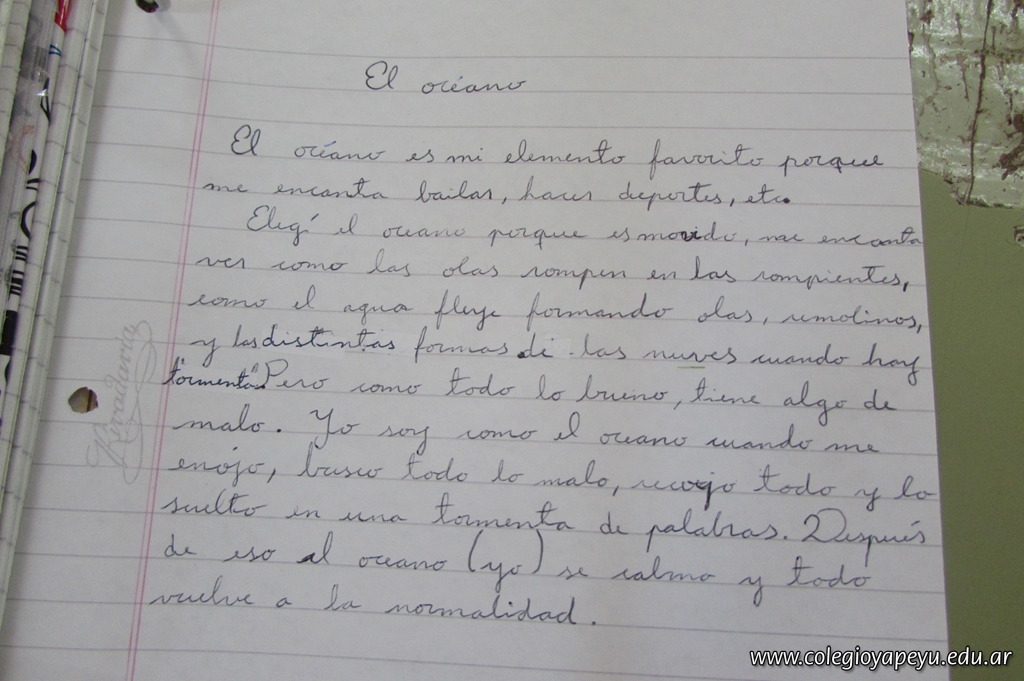 El océano
El océano es mi elemento favorito porque
me encanta bailar, hacer deportes, etc.
Elegí el oceano porque es movido, me encanta
ver como las olas rompen en las rompientes,
como el agua fluye formando olas, remolinos,
y las distintas formas de las nuves cuando hay
"tormenta". Pero como todo lo bueno, tiene algo de
malo. Yo soy como el oceano cuando me
enojo, busco todo lo malo, recojo todo y lo
suelto en una tormenta de palabras. Después
de eso al oceano (yo) se calma y todo
vuelve a la normalidad.
Rivadavia
www.colegioyapeyu.edu.ar